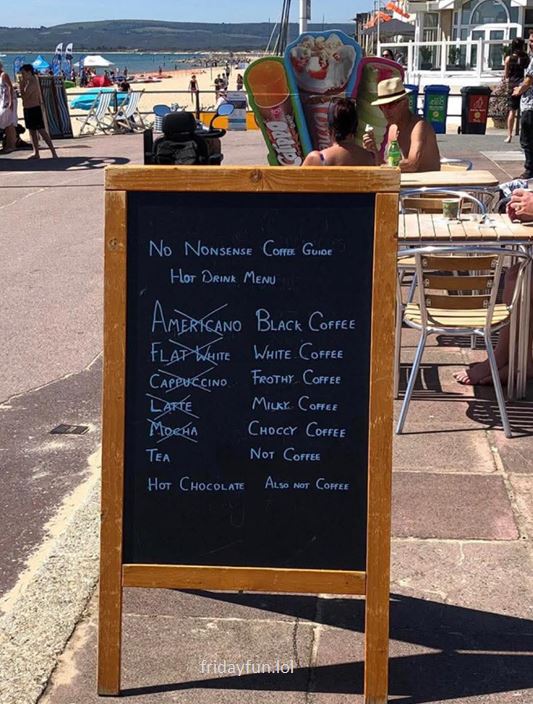 No Nonsense Coffee Guide
Hot Drink Menu
Americano Black Coffee
Flat White White Coffee
Cappuccino Frothy Coffee
Latte Milky Coffee
Mocha Choccy Coffee
Tea Not Coffee
Hot Chocolate Also not Coffee
fridayfun.lol